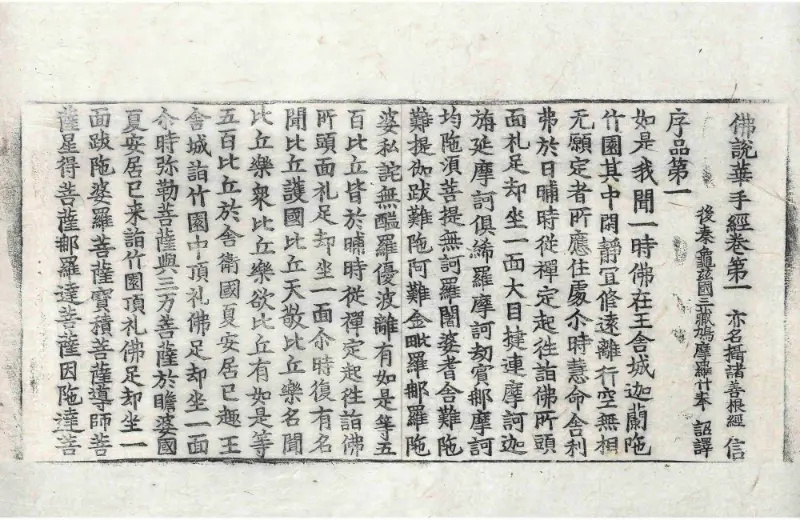 佛說華手經卷第一 亦名攝諸善根經 信
後秦龜茲國三藏鳩摩羅什奉 詔譯
序品第一
如是我聞一時佛在王舍城迦蘭陁
竹園其中閑靜冝修遠離行空無相
无願定者所應住處尒時慧命舍利
弗於日晡時從禪定起往詣佛所頭
面礼足却坐一面大目揵連摩訶迦
旃延摩訶俱絺羅摩訶劫賓那摩訶
均陁須菩提無訶羅闍婆耆舍難陁
難提伽跋難陁阿難金毗羅那羅陁
婆私詫無醯羅優波離有如是等五
百比丘皆於晡時從禪定起往詣佛
所頭面礼足却坐一面尒時復有名
聞比丘護國比丘天敬比丘樂名聞
比丘樂衆比丘樂欲比丘有如是等
五百比丘於舍衛國夏安居已趣王
舍城詣竹園中頂礼佛足却坐一面
尒時弥勒菩薩與三万菩薩於瞻婆國
夏安居已来詣竹園頂礼佛足却坐一
面跋陁婆羅菩薩寶積菩薩導師菩
薩星得菩薩那羅達菩薩因陁達菩